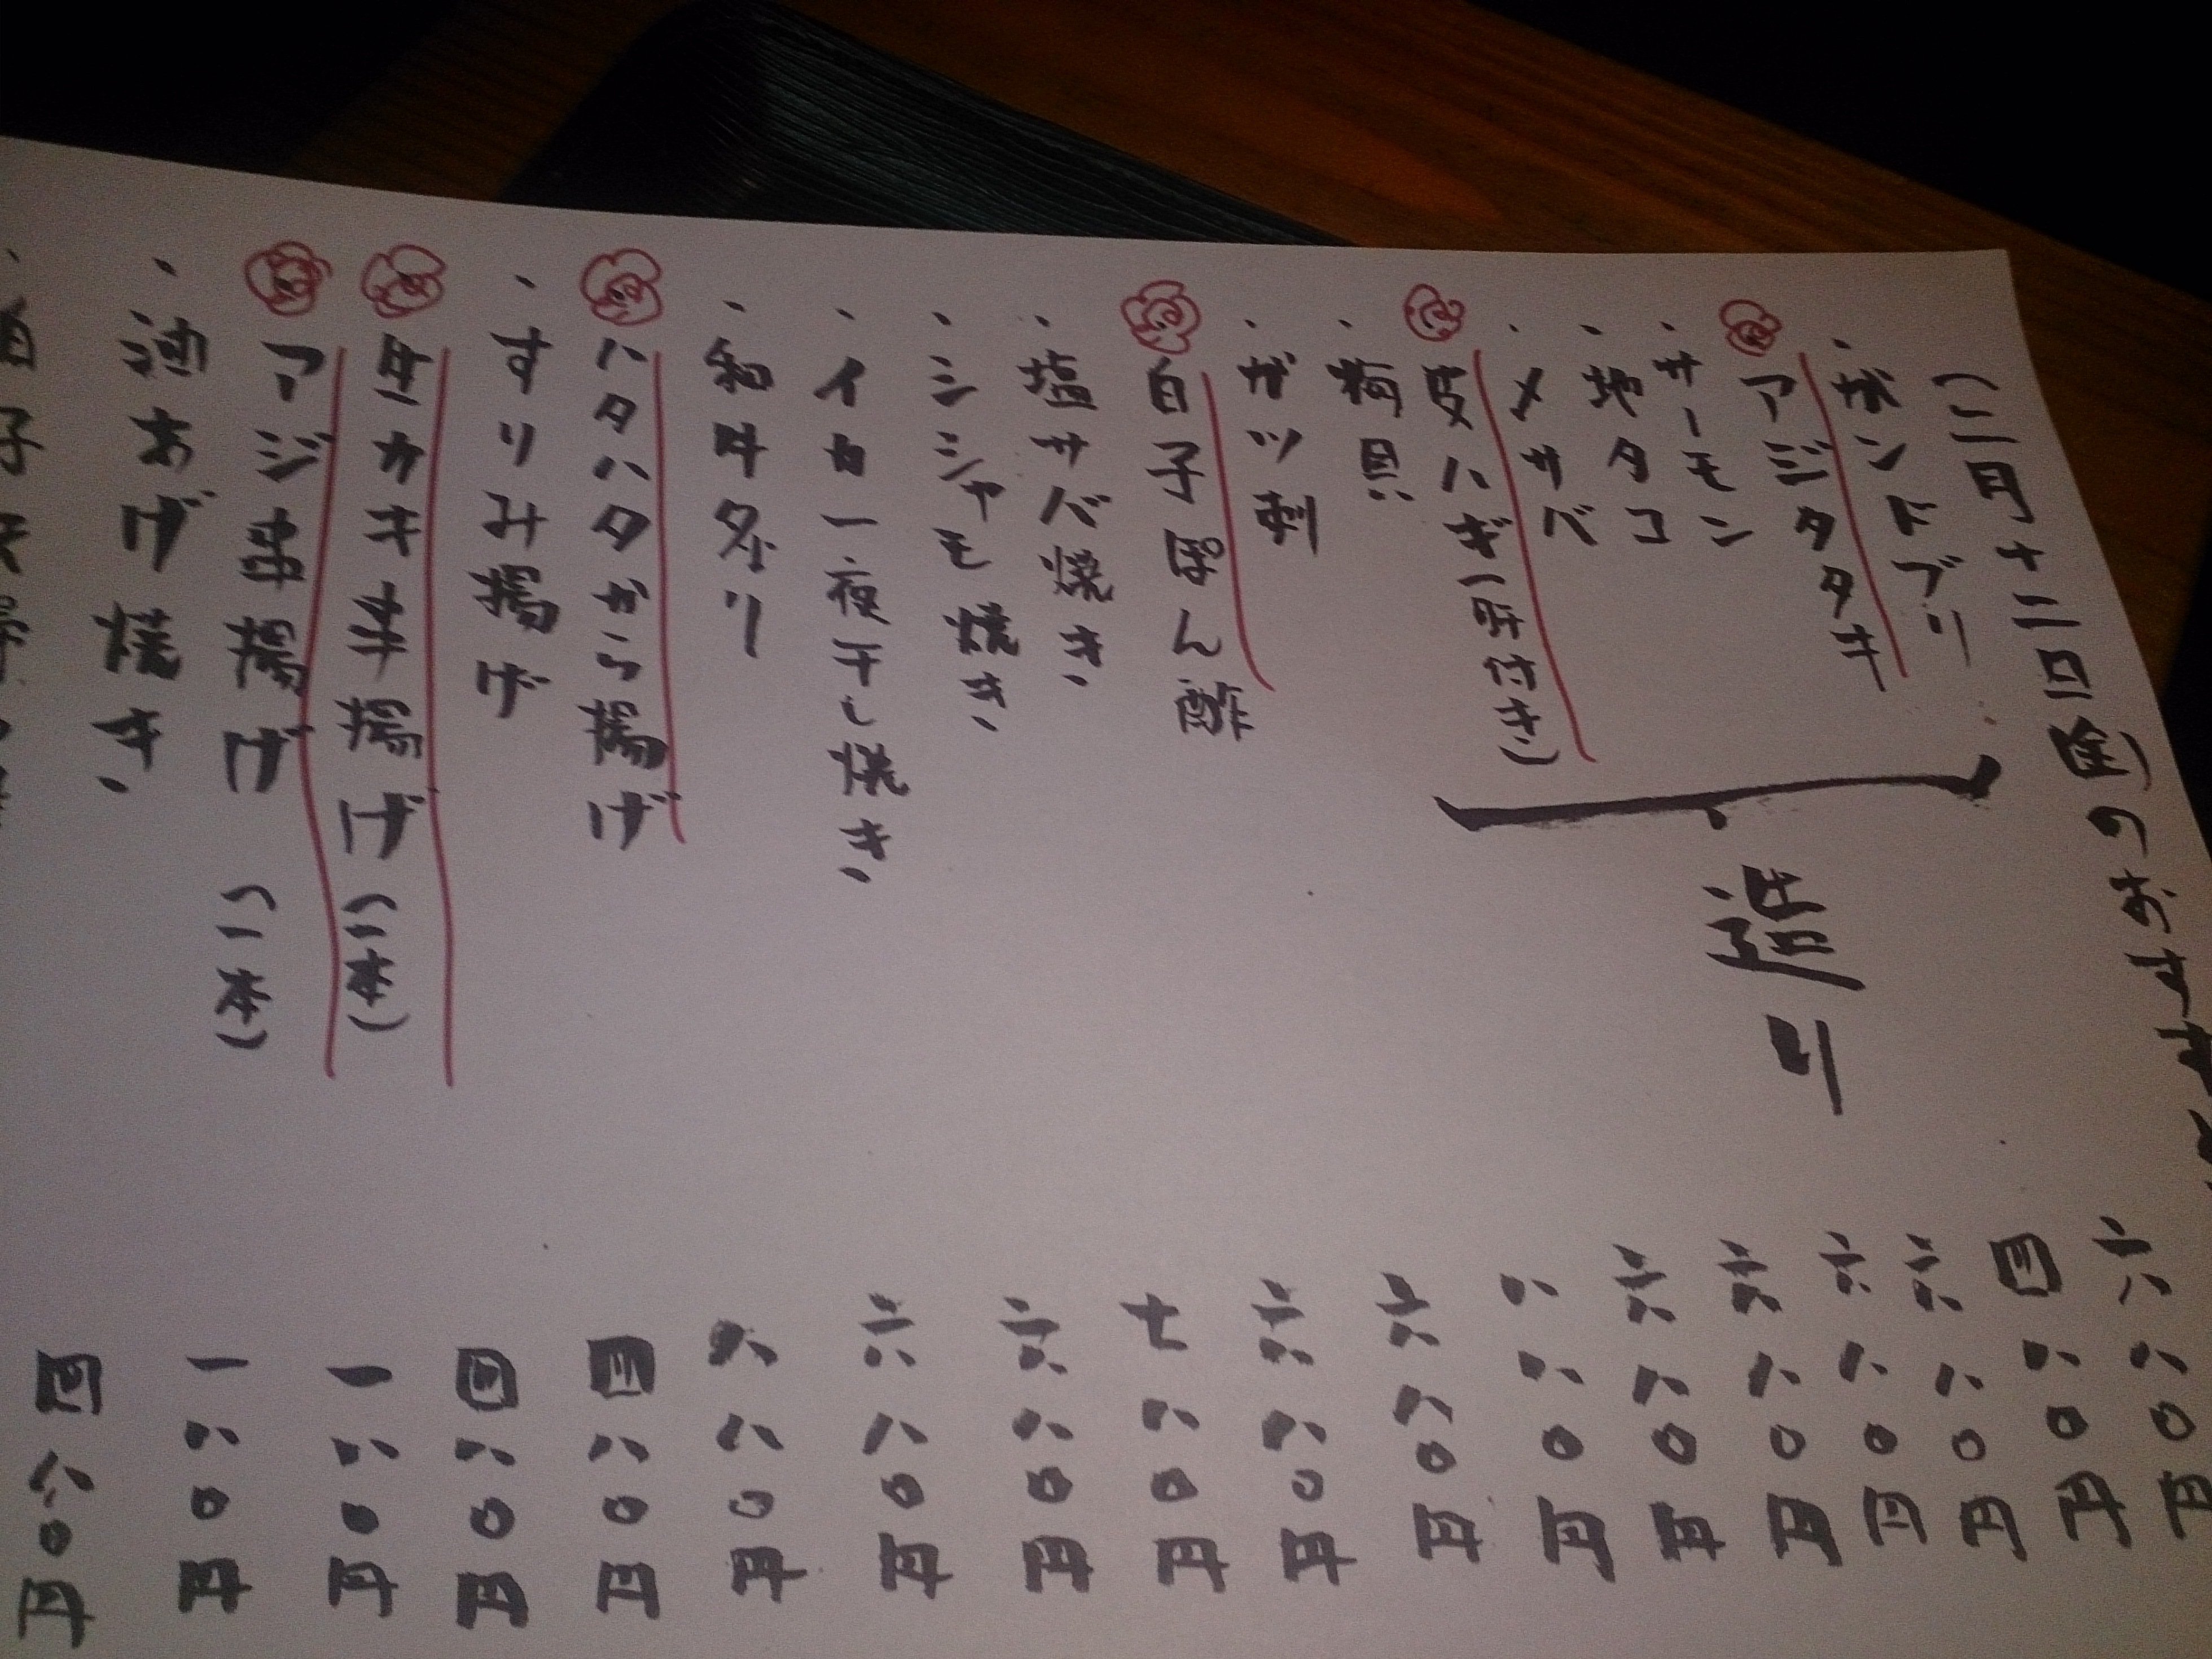 (二月十二日(金)のおすす
・ガンドブリ 六八〇円
アジタタキ 四八〇円
・サーモン 六八〇円
・地タコ 六八〇円
・メサバ 六八〇円
皮ハギ(肝付き) 六八〇円
造り
・梅貝 八八〇円
・ガツ刺 六八〇円
白子ぽん酢 六八〇円
・塩サバ焼き 七八〇円
・シシャモ焼き 六八〇円
・イカ一夜干し焼き 六八〇円
・和牛 八八〇円
ハタハタから揚げ 四八〇円
・すりみ揚げ 四八〇円
生カキ串揚げ(一本) 一八〇円
アジ串揚げ(一本) 一八〇円
・油あげ焼き 四八〇円
・白子